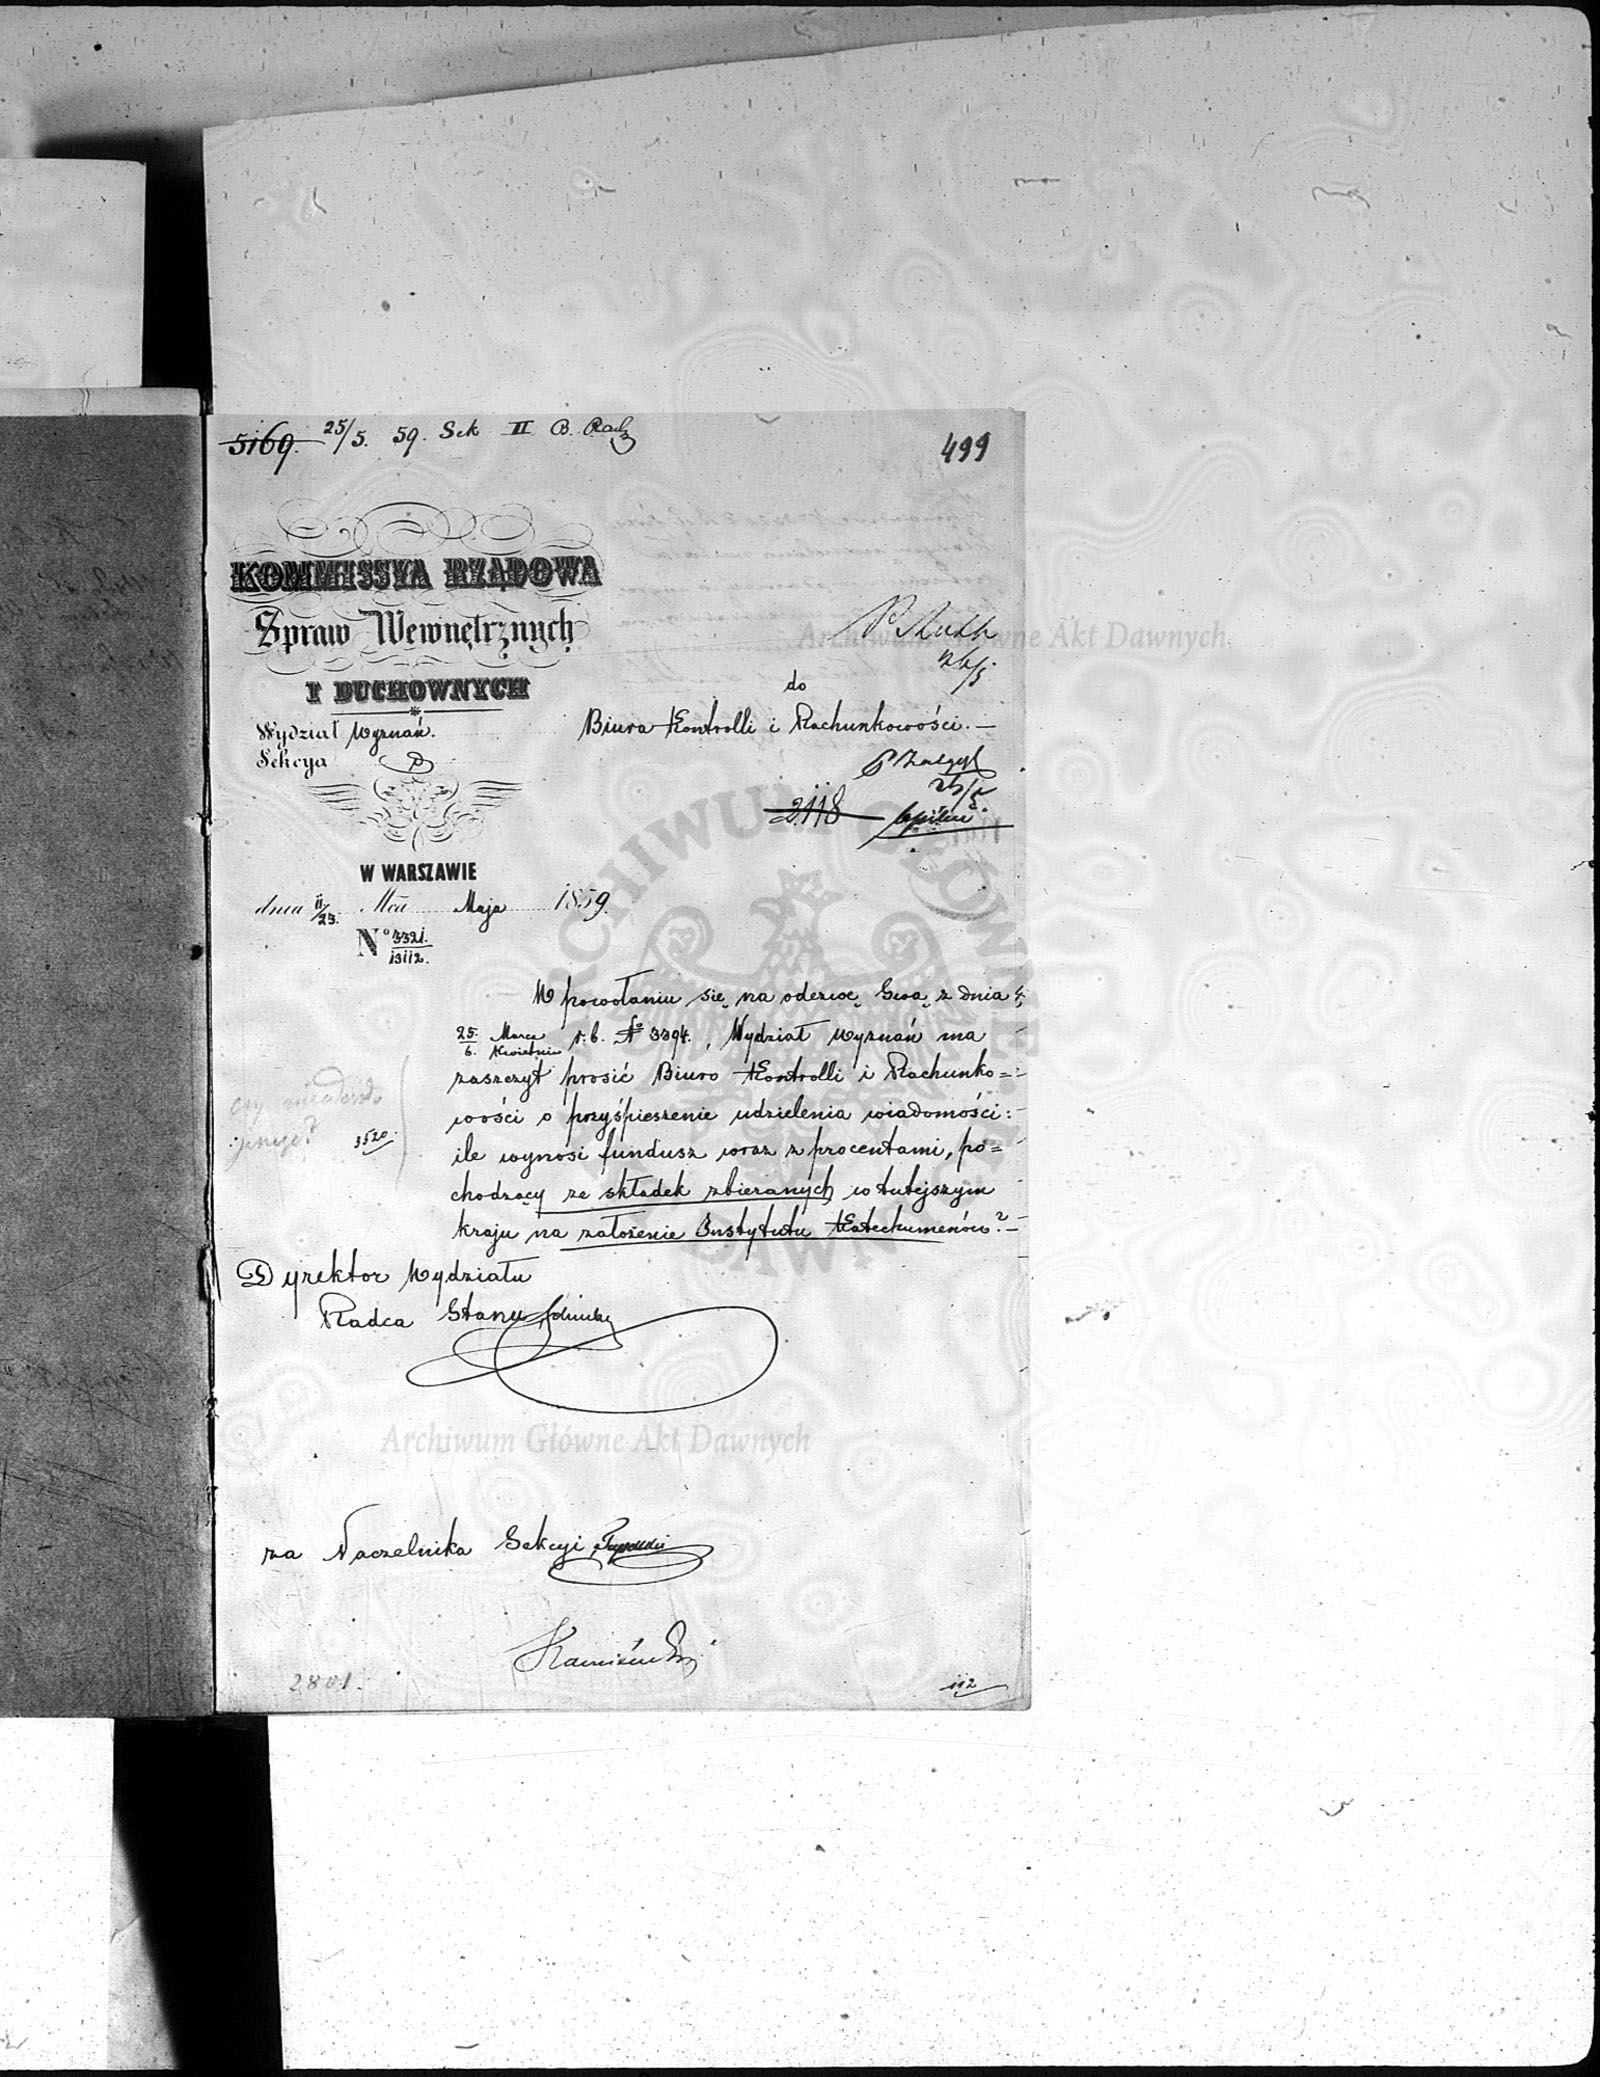 5169. 25/5. 59. Sek II B. Rach
499
KOMMISSYA RZĄDOWA
Spraw Wewnętrznych
I DUCHOWNYCH
Wydział Wyznań.
Sekcya
do
Biura Kontrolli i Rachunkowości. —
26/5
2118
W WARSZAWIE
dnia 11/23. Mca Maja 1859.
Nº 3321./13112.
W powołaniu się na odezwę Swą z dnia
25. Marca / 6. Kwietnia r. b. Nº 3394., Wydział Wyznań ma
zaszczyt prosić Biuro Kontrolli i Rachunko=
wości o przyśpieszenie udzielenia wiadomości:
ile wynosi fundusz wraz z procentami, po=
chodzący ze składek zbieranych w tutejszym
kraju na założenie Instytutu Katechumenów? —
czy
3520.
Dyrektor Wydziału
Radca Stanu
za Naczelnika Sekcyi
Kamiński
2801.
112
Archiwum Główne Akt Dawnych
Archiwum Główne Akt Dawnych
ARCHIWUM GŁÓWNE AKT DAWNYCH